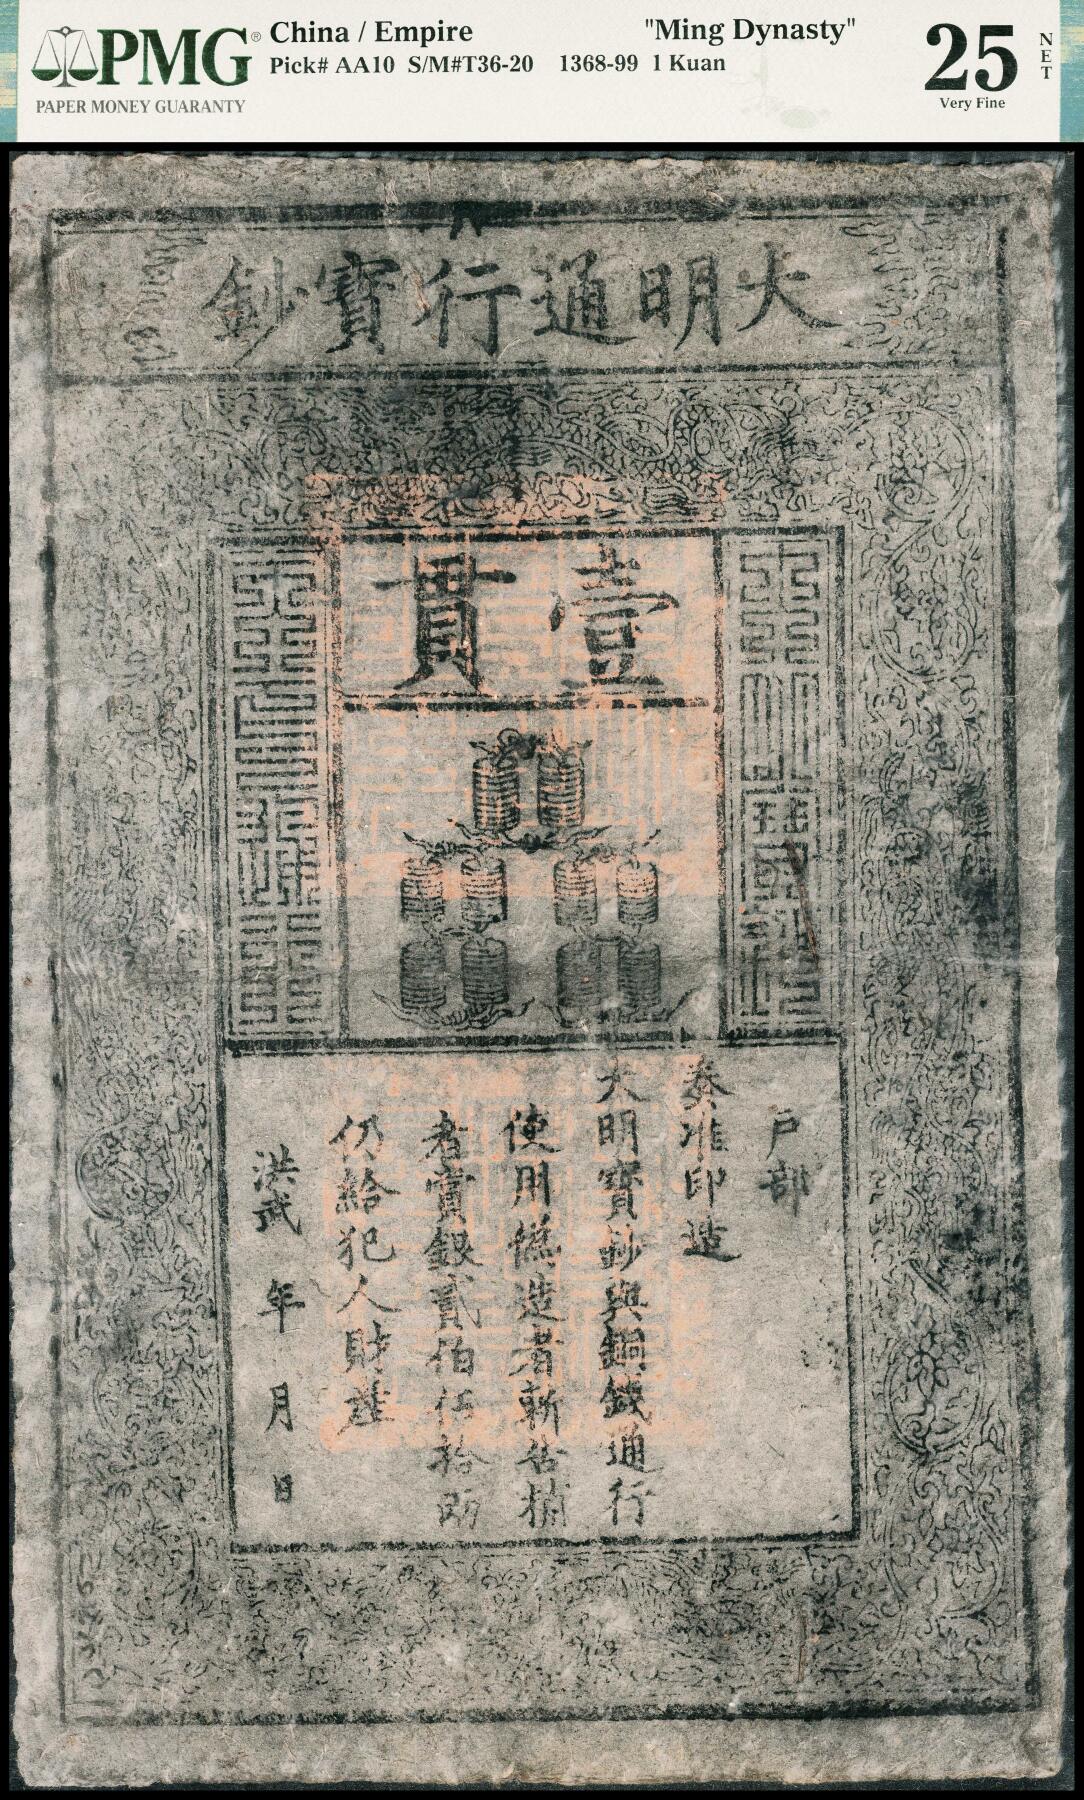 PMG®
PAPER MONEY GUARANTY
China / Empire "Ming Dynasty"
Pick# AA10 S/M#T36-20 1368-99 1 Kuan
25 NET
Very Fine
大明通行寶鈔
壹貫
戶部
奏准印造
大明寶鈔與銅錢通行
使用僞造者斬告捕
者賞銀貳伯伍拾兩
仍給犯人財產
洪武 年 月 日